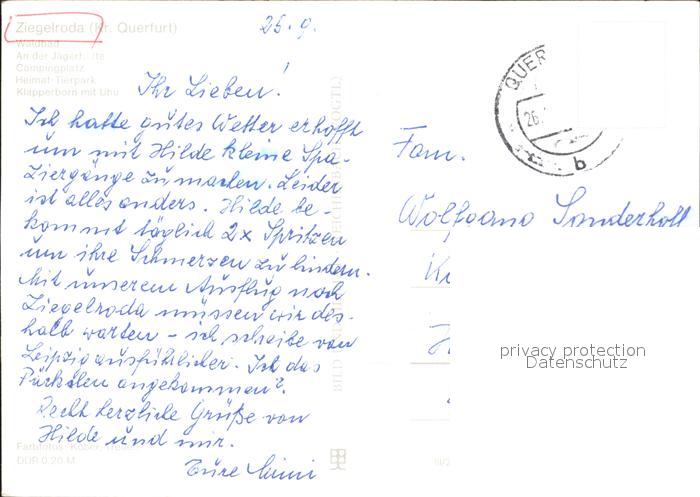 Ziegelroda (Kr. Querfurt)
Waldbad
An der Jägerhütte
Campingplatz
Heimat-Tierpark
Klapperborn mit Uhu
25. 9.
Ihr Lieben!
Ich hatte gutes Wetter erhofft
um mit Hilde kleine Spa-
ziergänge zu machen. Leider
ist alles anders. Hilde be-
kommt täglich 2x Spritzen
um ihre Schmerzen zu lindern.
Mit unserem Ausflug nach
Ziegelroda müssen wir des-
halb warten - ich scheibe von
Leipzig ausführlicher. Ist das
Päckchen angekommen?
Recht herzliche Grüße von
Hilde und mir.
Eure Mimi
DDR 0,20 M
QUER
26.
b
Fam.
Wolfgang Sonderhoff
privacy protection
Datenschutz